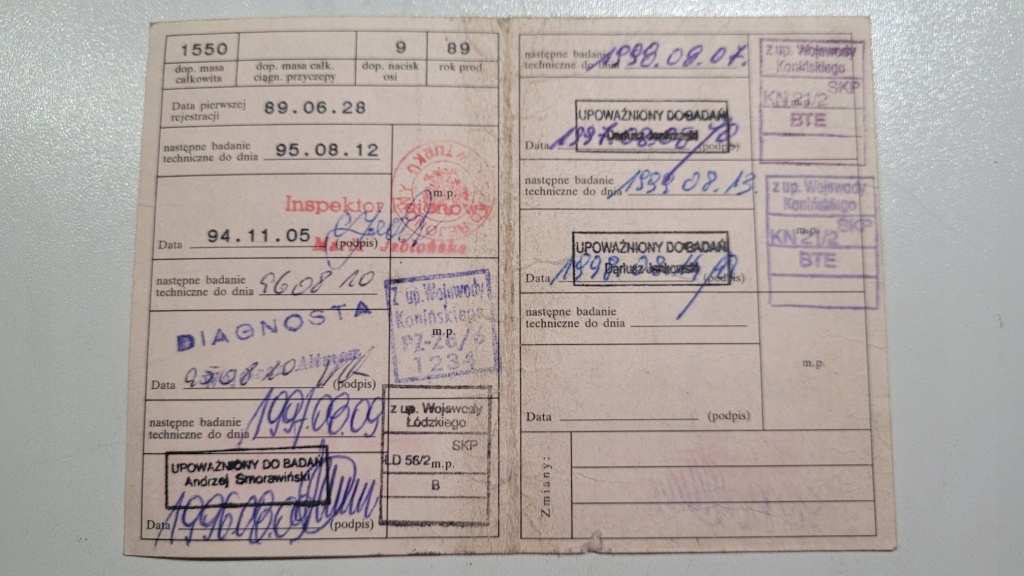 1550 9 89
dop. masa całkowita dop. masa całk. ciągn. przyczepy dop. nacisk osi rok prod.
Data pierwszej
rejestracji 89.06.28
następne badanie
techniczne do dnia 95.08.12
m.p.
Inspektor
Data 94.11.05 (podpis)
Jabłońska
następne badanie
techniczne do dnia 96 08 10
DIAGNOSTA
Z up. Wojewody
Konińskiego
m.p.
PZ-26/6
1234
Data 95.08.10 (podpis)
następne badanie
techniczne do dnia 1997.08.09
z up. Wojewody
Łódzkiego
SKP
LD 56/2 m.p.
B
UPOWAŻNIONY DO BADAŃ
Andrzej Smorawiński
Data 1996.08.09 (podpis)
następne badanie
techniczne do dnia 1998.08.07.
z up. Wojewody
Konińskiego
SKP
KN 21/2
BTE
UPOWAŻNIONY DO BADAŃ
Data (podpis)
następne badanie
techniczne do dnia 1999 08.13.
z up. Wojewody
Konińskiego
SKP
m.p.
KN 21/2
BTE
UPOWAŻNIONY DO BADAŃ
Dariusz
Data (podpis)
następne badanie
techniczne do dnia
m.p.
Data (podpis)
Zmiany: